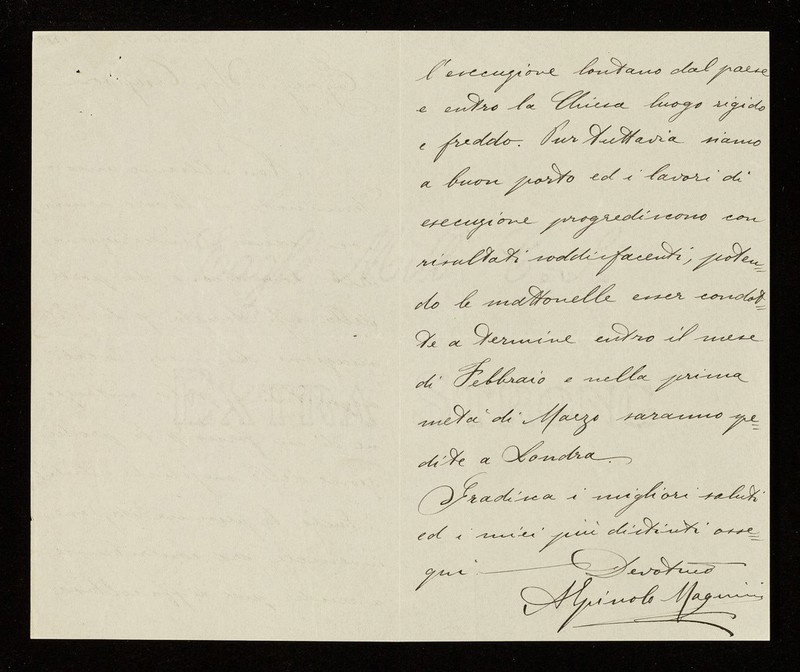 l'esecuzione lontano dal paese
e entro la Chiesa luogo rigido
e freddo. Pur tuttavia siamo
a buon porto ed i lavori di
esecuzione progrediscono con
risultati soddisfacenti, poten=
do le mattonelle esser condot=
te a termine entro il mese
di Febbraio e nella prima
metà di Marzo saranno spe=
dite a Londra.
Gradisca i migliori saluti
ed i miei più distinti osse=
qui — Devotmo
Alpinolo Magnini